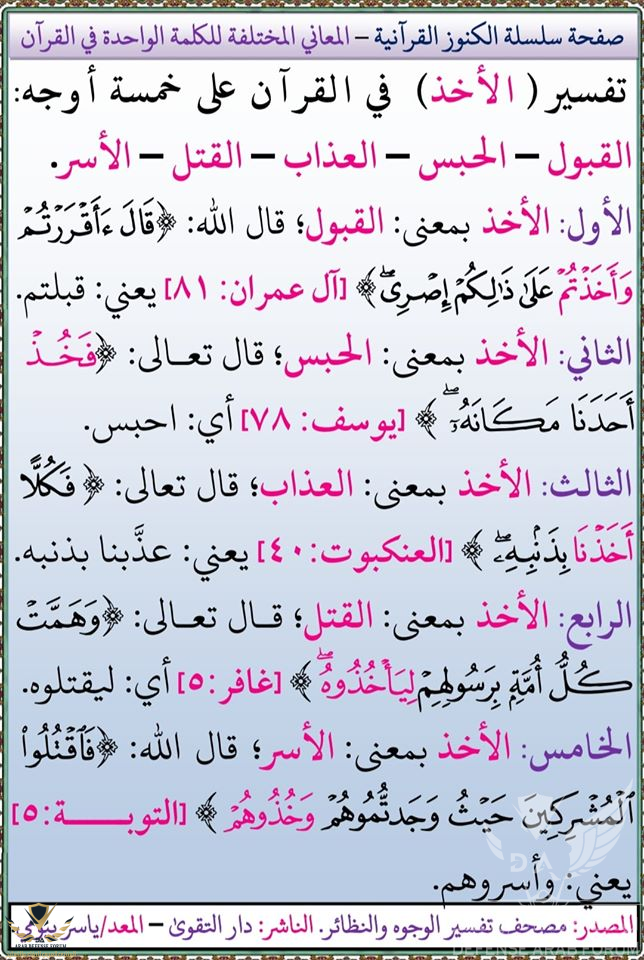 صفحة سلسلة الكنوز القرآنية – المعاني المختلفة للكلمة الواحدة في القرآن
تفسير (الأخذ) في القرآن على خمسة أوجه:
القبول – الحبس – العذاب – القتل – الأسر.
الأول: الأخذ بمعنى: القبول؛ قال الله: ﴿قَالَ ءَأَقۡرَرۡتُمۡ
وَأَخَذۡتُمۡ عَلَىٰ ذَٰلِكُمۡ إِصۡرِيۖ﴾ [آل عمران: ٨١] يعني: قبلتم.
الثاني: الأخذ بمعنى: الحبس؛ قال تعالى: ﴿فَخُذۡ
أَحَدَنَا مَكَانَهُۥٓۖ﴾ [يوسف: ٧٨] أي: احبس.
الثالث: الأخذ بمعنى: العذاب؛ قال تعالى: ﴿فَكُلًّا
أَخَذۡنَا بِذَنۢبِهِۦۖ﴾ [العنكبوت: ٤٠] يعني: عذَّبنا بذنبه.
الرابع: الأخذ بمعنى: القتل؛ قال تعالى: ﴿وَهَمَّتۡ
كُلُّ أُمَّةِۭ بِرَسُولِهِمۡ لِيَأۡخُذُوهُۖ﴾ [غافر: ٥] أي: ليقتلوه.
الخامس: الأخذ بمعنى: الأسر؛ قال الله: ﴿فَٱقۡتُلُواْ
ٱلۡمُشۡرِكِينَ حَيۡثُ وَجَدتُّمُوهُمۡ وَخُذُوهُمۡ﴾ [التوبة: ٥]
يعني: وأسروهم.
المصدر: مصحف تفسير الوجوه والنظائر. الناشر: دار التقوىٰ – المعد/ياسر بيومي
DA
ARAB DEFENSE FORUM
DEFENSE ARAB FORUM